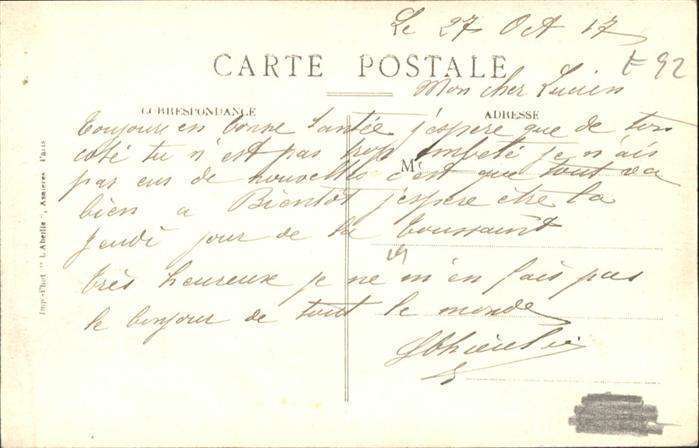 Le 27 Oct 17
F 92
CARTE POSTALE
Mon cher Lucien
CORRESPONDANCE
ADRESSE
toujour en bonne santée j'espere que de ton
coté tu n'est pas trop embeté je n'ais
M
pas eus de nouvelles c'est que tout va
bien a Bientot j'espere être la
Jeudi jour de la Toussaint
très heureux je ne m'en fais pas
le bonjour de tout le monde
Imp.-Phot "L'Abeille", Asnieres Paris